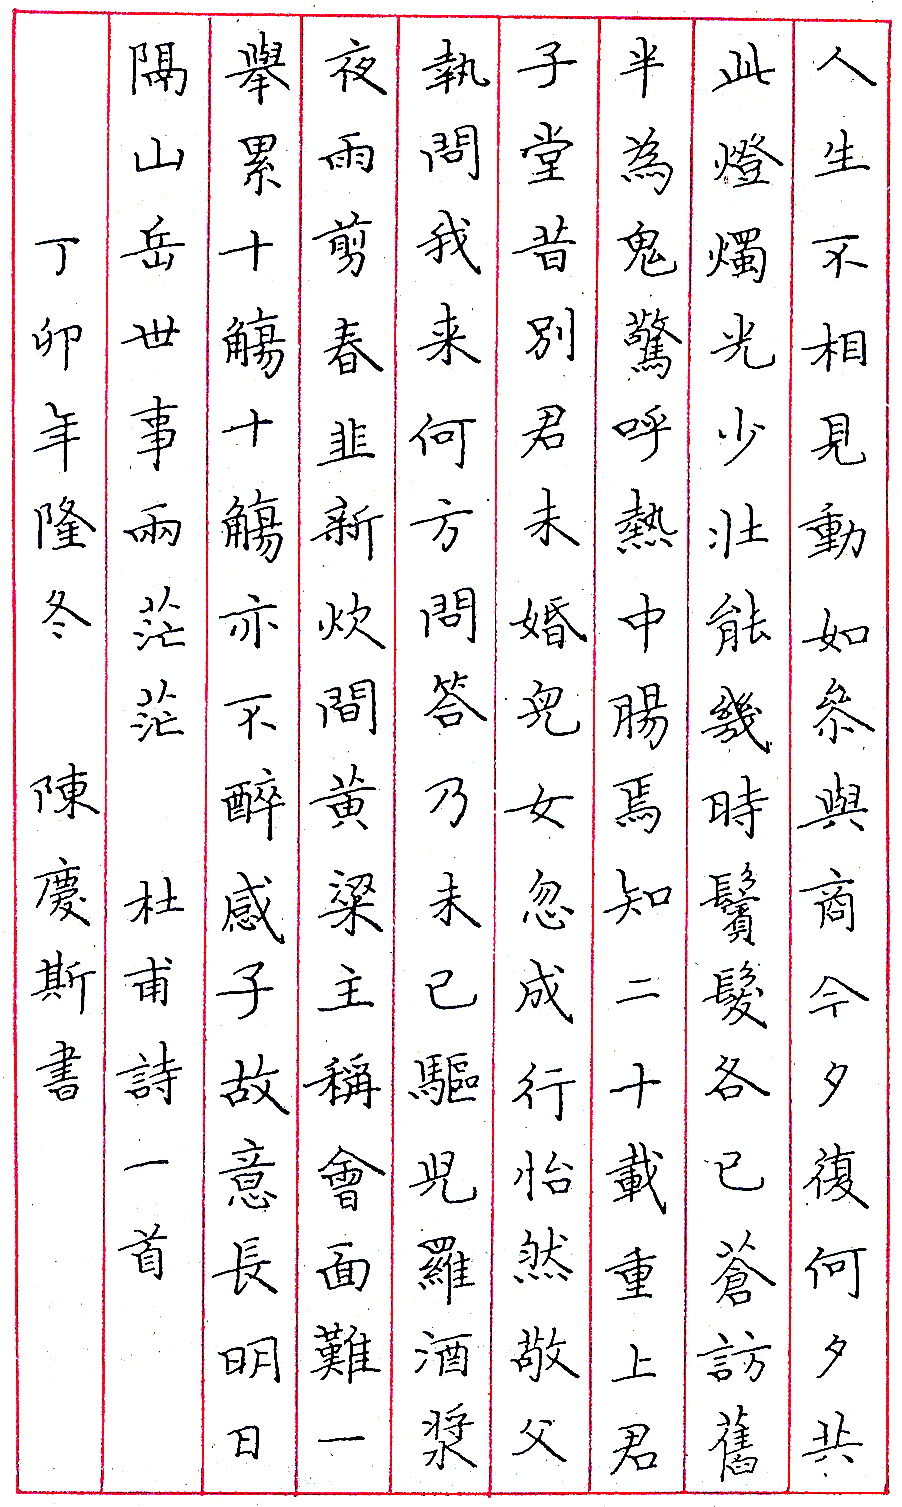 人生不相見動如參與商今夕復何夕共
此燈燭光少壯能幾時鬢髮各已蒼訪舊
半為鬼驚呼熱中腸焉知二十載重上君
子堂昔別君未婚兒女忽成行怡然敬父
執問我来何方問答乃未已驅兒羅酒漿
夜雨剪春韭新炊間黃粱主稱會面難一
舉累十觴十觴亦不醉感子故意長明日
隔山岳世事兩茫茫 杜甫詩一首
丁卯年隆冬 陳慶斯書